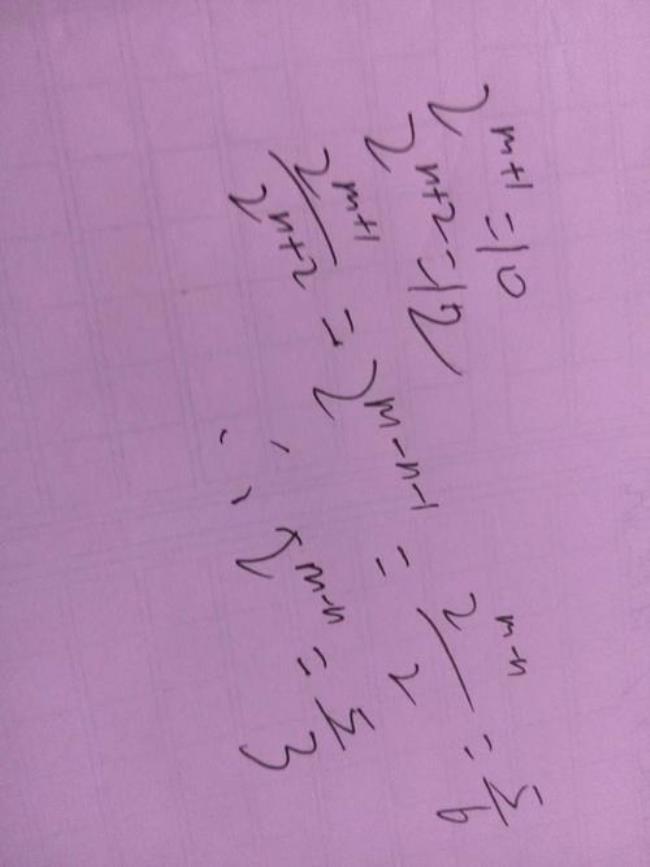 2^{m+1} = 10
2^{n+2} = 12
\frac{2^{m+1}}{2^{n+2}} = 2^{m-n-1} = \frac{2^{m-n}}{2} = \frac{5}{6}
∴ 2^{m-n} = \frac{5}{3}